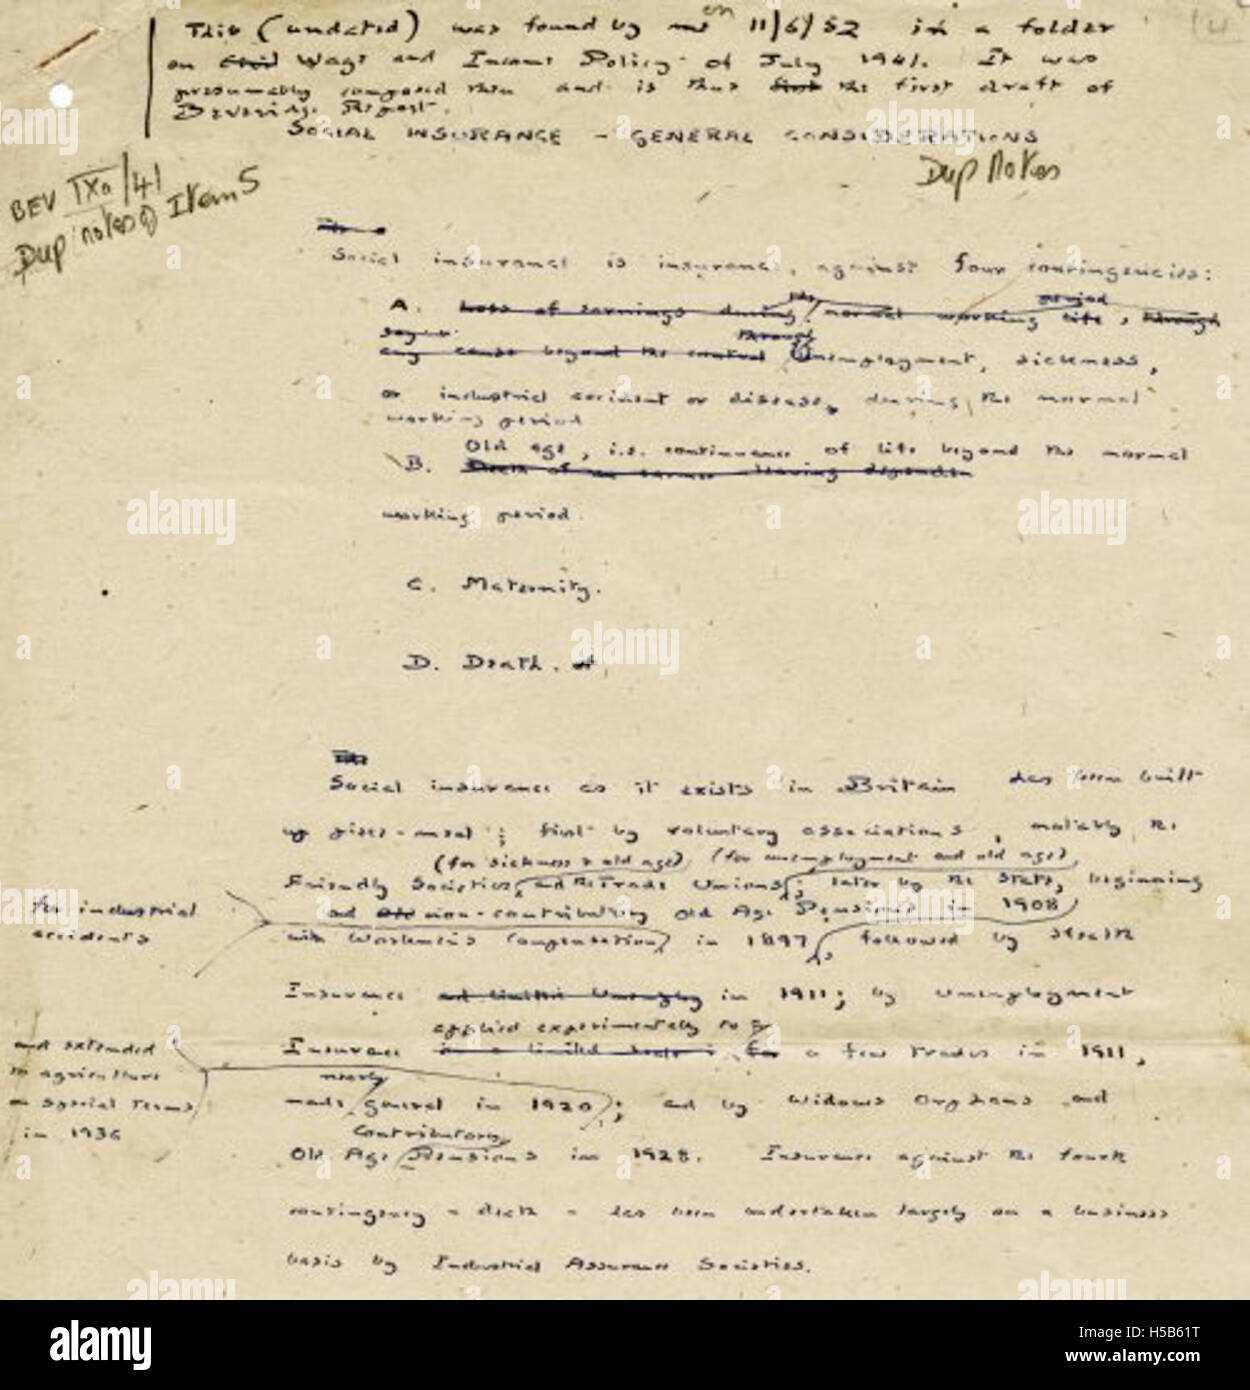 This (undated) was found by me on 11/6/52 in a folder
on Civil Wage and Income Policy of July 1941. It was
presumably composed then and is thus first the first draft of
Beveridge Report.
SOCIAL INSURANCE – GENERAL CONSIDERATIONS
Dup Notes
BEV IXa/41 Item 5
Dup notes
Social insurance is insurance, against four contingencies:
period
A. Loss of earnings during the normal working life, through
through
any cause beyond the control Unemployment, sickness,
or industrial accident or disease, during the normal
working period
Old age, i.e. continuance of life beyond the normal
B. Death of an earner leaving dependen
working period.
C. Maternity.
D. Death.
Social insurance as it exists in Britain has been built
up piece-meal; first by voluntary associations, notably the
(for sickness & old age) (for unemployment and old age)
Friendly Societies, and the Trade Unions; later by the State, beginning
for industrial
accidents
and non-contributory Old Age Pensions in 1908
with Workmen's Compensation in 1897, followed by Health
Insurance in 1911; by Unemployment
applied experimentally to
Insurance in a limited for a few trades in 1911,
and extended
to agriculture
on special terms
in 1936
nearly
made general in 1920; and by Widows Orphans and
Contributory
Old Age Pensions in 1928. Insurance against the fourth
contingency – death – has been undertaken largely on a business
basis by Industrial Assurance Societies.
alamy
a
alamy
Image ID: H5B61T
www.alamy.com